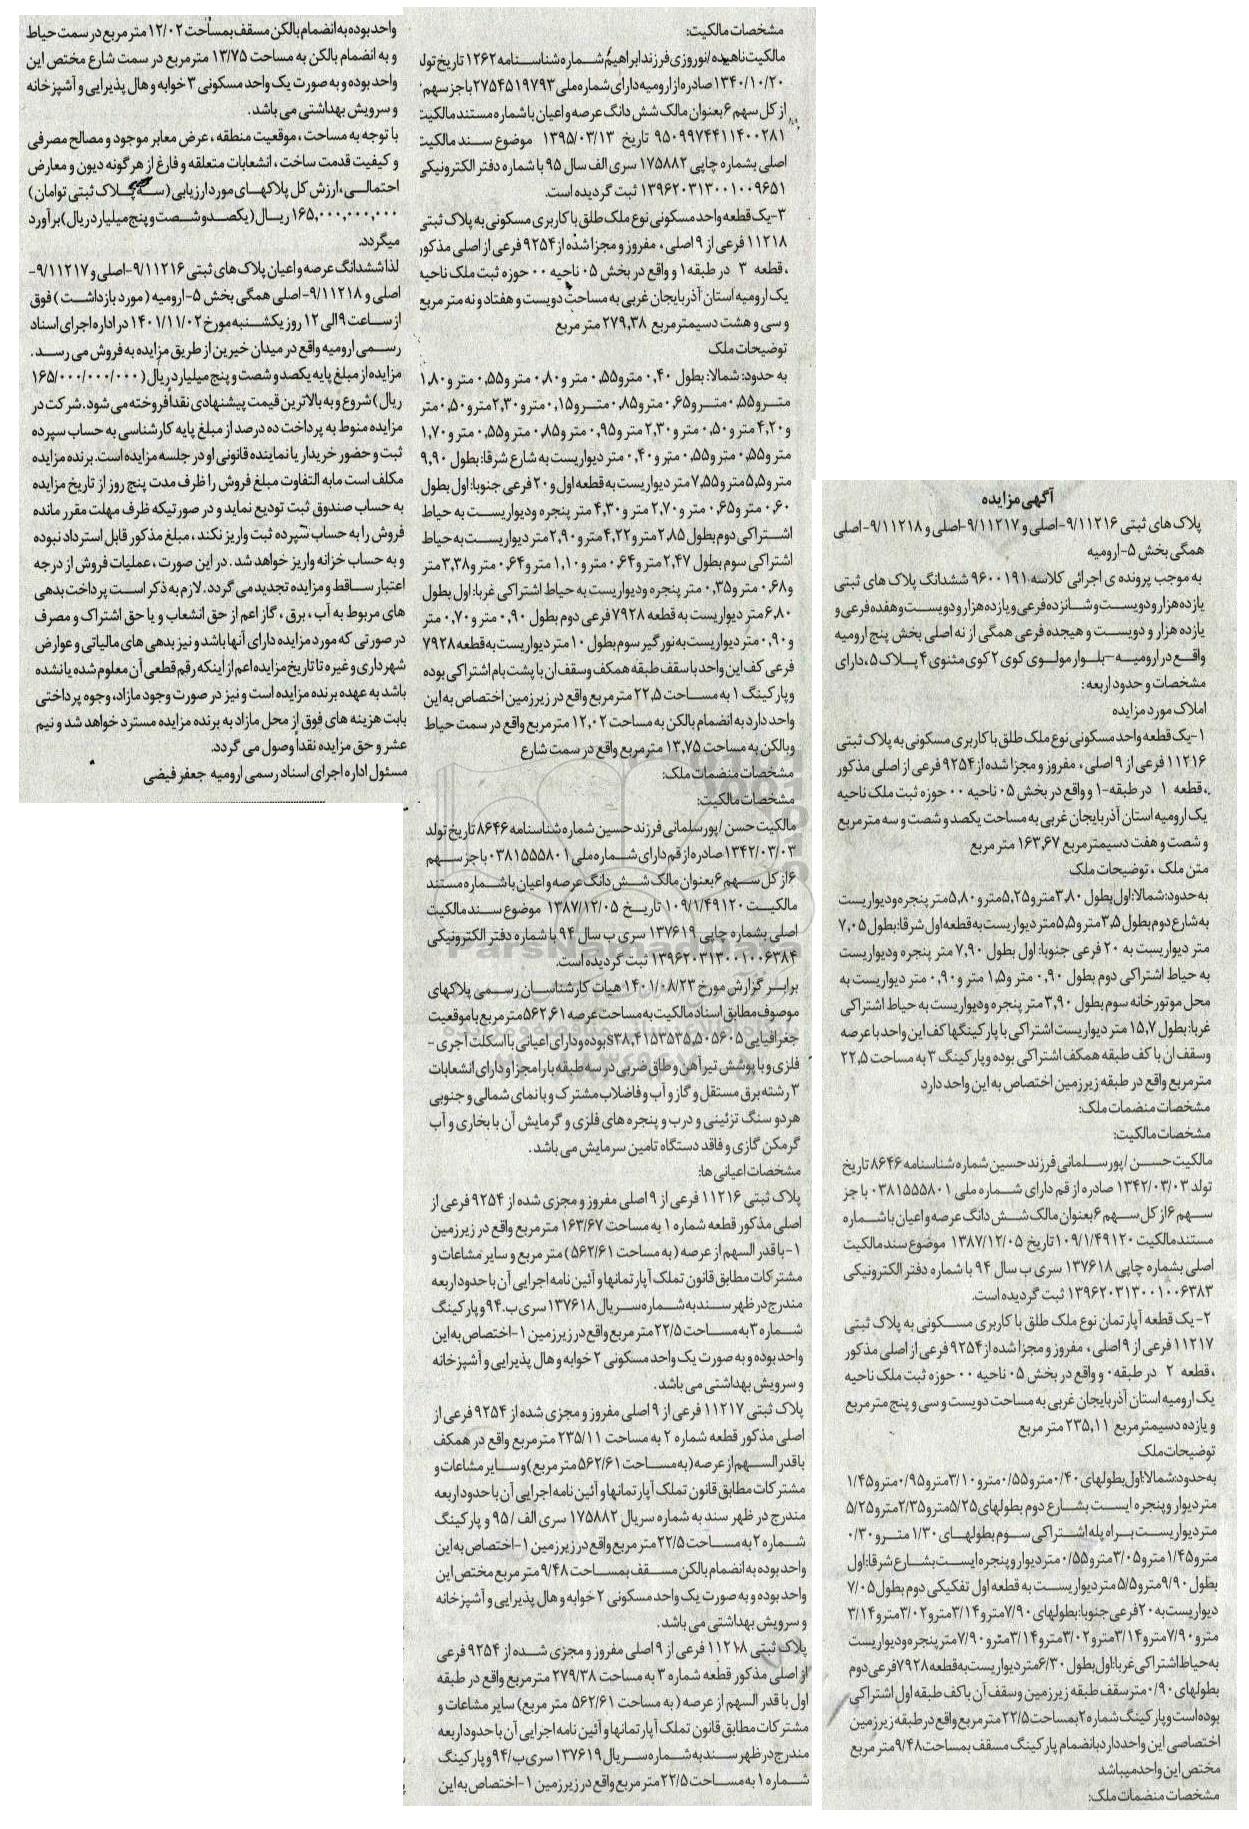 آگهی مزایده
پلاک های ثبتی ۹/۱۱۲۱۶-اصلی و ۹/۱۱۲۱۷-اصلی و ۹/۱۱۲۱۸-اصلی
همگی بخش ۵-ارومیه
به موجب پرونده ی اجرائی کلاسه ۹۶۰۰۱۹۱ ششدانگ پلاک های ثبتی
یازده هزار و دویست و شانزده فرعی و یازده هزار و دویست و هفده فرعی و
یازده هزار و دویست و هیجده فرعی همگی از نه اصلی بخش پنج ارومیه
واقع در ارومیه – بلوار مولوی کوی ۲ کوی مثنوی ۴ پلاک ۵، دارای
مشخصات و حدود اربعه:
املاک مورد مزایده
۱-یک قطعه واحد مسکونی نوع ملک طلق با کاربری مسکونی به پلاک ثبتی
۱۱۲۱۶ فرعی از ۹ اصلی ، مفروز و مجزا شده از ۹۲۵۴ فرعی از اصلی مذکور
،قطعه ۱ در طبقه-۱ و واقع در بخش ۰۵ ناحیه ۰۰ حوزه ثبت ملک ناحیه
یک ارومیه استان آذربایجان غربی به مساحت یکصد و شصت و سه متر مربع
و شصت و هفت دسیمتر مربع ۱۶۳,۶۷ متر مربع
متن ملک ، توضیحات ملک
به حدود: شمالا: اول بطول ۳,۸۰ متر و ۵,۲۵متر و ۵,۸۰متر پنجره ودیواریست
به شارع دوم بطول ۳,۵ متر و ۵,۵ متر دیواریست به قطعه اول شرقا: بطول ۷,۰۵
متر دیواریست به ۲۰ فرعی جنوبا: اول بطول ۷,۹۰ متر پنجره ودیواریست
به حیاط اشتراکی دوم بطول ۰,۹۰ متر و ۱,۵ متر و ۰,۹۰ متر دیواریست به
محل موتورخانه سوم بطول ۳,۹۰ متر پنجره ودیواریست به حیاط اشتراکی
غربا: بطول ۱۵,۷ متر دیواریست اشتراکی با پارکینگها کف این واحد با عرصه
وسقف ان با کف طبقه همکف اشتراکی بوده وپارکینگ ۳ به مساحت ۲۲,۵
مترمربع واقع در طبقه زیرزمین اختصاص به این واحد دارد
مشخصات منضمات ملک:
مشخصات مالکیت:
مالکیت حسن /پورسلمانی فرزند حسین شماره شناسنامه ۸۶۴۶ تاریخ
تولد ۱۳۴۲/۰۳/۰۳ صادره از قم دارای شماره ملی ۰۳۸۱۵۵۵۸۰۱ با جز
سهم ۶ از کل سهم ۶بعنوان مالک شش دانگ عرصه و اعیان با شماره
مستند مالکیت ۱۰۹/۱/۴۹۱۲۰ تاریخ ۱۳۸۷/۱۲/۰۵ موضوع سند مالکیت
اصلی بشماره چاپی ۱۳۷۶۱۸ سری ب سال ۹۴ با شماره دفتر الکترونیکی
۱۳۹۶۲۰۳۱۳۰۰۱۰۰۶۳۸۳ ثبت گردیده است.
۲- یک قطعه آپارتمان نوع ملک طلق با کاربری مسکونی به پلاک ثبتی
۱۱۲۱۷ فرعی از ۹ اصلی ، مفروز و مجزا شده از ۹۲۵۴ فرعی از اصلی مذکور
،قطعه ۲ در طبقه ۰ و واقع در بخش ۰۵ ناحیه ۰۰ حوزه ثبت ملک ناحیه
یک ارومیه استان آذربایجان غربی به مساحت دویست و سی و پنج متر مربع
و یازده دسیمتر مربع ۲۳۵,۱۱ متر مربع
توضیحات ملک
به حدود: شمالا: اول بطولهای ۰/۴۰ مترو ۰/۵۵ مترو ۳/۱۰ مترو ۰/۹۵ مترو ۱/۴۵
متر دیوار و پنجره ایست بشارع دوم بطولهای ۵/۲۵ مترو ۲/۳۵ مترو ۵/۲۵
متر دیواریست براه پله اشتراکی سوم بطولهای ۱/۳۰ مترو ۰/۳۰
مترو ۱/۴۵ مترو ۳/۰۵ مترو ۰/۵۵ متر دیوار و پنجره ایست بشارع شرقا: اول
بطول ۹/۹۰ مترو ۵/۵ متر دیواریست به قطعه اول تفکیکی دوم بطول ۷/۰۵
دیواریست به ۲۰ فرعی جنوبا: بطولهای ۷/۹۰ مترو ۳/۱۴ مترو ۳/۰۲ مترو ۳/۱۴
مترو ۷/۹۰ مترو ۳/۱۴ مترو ۳/۰۲ مترو ۳/۱۴ مترو ۷/۹۰ متر پنجره ودیواریست
به حیاط اشتراکی غربا: اول بطول ۶/۳۰ متر دیواریست به قطعه ۷۹۲۸ فرعی دوم
بطولهای ۰/۹۰ متر سقف طبقه زیرزمین وسقف آن باکف طبقه اول اشتراکی
بوده است وپارکینگ شماره ۲ بمساحت ۲۲/۵ متر مربع واقع در طبقه زیرزمین
اختصاصی این واحد دارد بانضمام پارکینگ مسقف بمساحت ۹/۴۸ متر مربع
مختص این واحد میباشد
مشخصات منضمات ملک:
مشخصات مالکیت:
مالکیت ناهیده/نوروزی فرزند ابراهیم شماره شناسنامه ۱۲۶۲ تاریخ تولد
۱۳۴۰/۱۰/۲۰ صادره از ارومیه دارای شماره ملی ۲۷۵۴۵۱۹۷۹۳ با جز سهم ۶
از کل سهم ۶ بعنوان مالک شش دانگ عرصه و اعیان با شماره مستند مالکیت
۹۵۰۹۹۷۴۴۱۱۴۰۰۲۸۱ تاریخ ۱۳۹۵/۰۳/۱۳ موضوع سند مالکیت
اصلی بشماره چاپی ۱۷۵۸۸۲ سری الف سال ۹۵ با شماره دفتر الکترونیکی
۱۳۹۶۲۰۳۱۳۰۰۱۰۰۹۶۵۱ ثبت گردیده است.
۳-یک قطعه واحد مسکونی نوع ملک طلق با کاربری مسکونی به پلاک ثبتی
۱۱۲۱۸ فرعی از ۹ اصلی ، مفروز و مجزا شده از ۹۲۵۴ فرعی از اصلی مذکور
،قطعه ۳ در طبقه ۱ و واقع در بخش ۰۵ ناحیه ۰۰ حوزه ثبت ملک ناحیه
یک ارومیه استان آذربایجان غربی به مساحت دویست و هفتاد و نه متر مربع
و سی و هشت دسیمتر مربع ۲۷۹,۳۸ متر مربع
توضیحات ملک
به حدود: شمالا: بطول ۰,۴۰ مترو ۰,۵۵ متر و ۰,۸۰ متر و ۰,۵۵ متر و ۱,۸۰
مترو ۰,۵۵ مترو ۰,۶۵ مترو ۰,۸۵ مترو ۰,۱۵ مترو ۲,۳۰ مترو ۰,۵۰ متر
و ۴,۲۰ متر و ۰,۵۰ متر و ۲,۳۰ متر و ۰,۹۵ متر و ۰,۸۵ متر و ۰,۵۵ متر و ۱,۷۰
متر و ۰,۵۵ متر و ۰,۵۵ متر و ۰,۴۰ متر دیواریست به شارع شرقا: بطول ۹,۹۰
متر و ۵,۵ متر و ۷,۵۵ متر دیواریست به قطعه اول و ۲۰ فرعی جنوبا: اول بطول
۰,۶۰ متر و ۰,۶۵ متر و ۲,۷۰ متر و ۴,۳۰ متر پنجره ودیواریست به حیاط
اشتراکی دوم بطول ۲,۸۵ متر و ۴,۲۲ متر و ۲,۹۰ متر دیواریست به حیاط
اشتراکی سوم بطول ۲,۴۷ متر و ۰,۶۴ متر و ۱,۱۰ متر و ۰,۶۴ متر و ۳,۳۸ متر
و ۰,۶۸ متر و ۰,۳۵ متر پنجره ودیواریست به حیاط اشتراکی غربا: اول بطول
۶,۸۰ متر دیواریست به قطعه ۷۹۲۸ فرعی دوم بطول ۰,۹۰ متر و ۰,۷۰ متر
و ۰,۹۰ متر دیواریست به نورگیر سوم بطول ۱۰ متر دیواریست به قطعه ۷۹۲۸
فرعی کف این واحد با سقف طبقه همکف وسقف ان با پشت بام اشتراکی بوده
وپارکینگ ۱ به مساحت ۲۲,۵ مترمربع واقع در زیرزمین اختصاص به این
واحد دارد به انضمام بالکن به مساحت ۱۲,۰۲ مترمربع واقع در سمت حیاط
وبالکن به مساحت ۱۳,۷۵ مترمربع واقع در سمت شارع
مشخصات منضمات ملک:
مشخصات مالکیت:
مالکیت حسن /پورسلمانی فرزند حسین شماره شناسنامه ۸۶۴۶ تاریخ تولد
۱۳۴۲/۰۳/۰۳ صادره از قم دارای شماره ملی ۰۳۸۱۵۵۵۸۰۱ با جز سهم
۶ از کل سهم ۶بعنوان مالک شش دانگ عرصه و اعیان با شماره مستند
مالکیت ۱۰۹/۱/۴۹۱۲۰ تاریخ ۱۳۸۷/۱۲/۰۵ موضوع سند مالکیت
اصلی بشماره چاپی ۱۳۷۶۱۹ سری ب سال ۹۴ با شماره دفتر الکترونیکی
۱۳۹۶۲۰۳۱۳۰۰۱۰۰۶۳۸۴ ثبت گردیده است.
برابر گزارش مورخ ۱۴۰۱/۰۸/۲۳ هیات کارشناسان رسمی پلاکهای
موصوف مطابق اسناد مالکیت به مساحت عرصه ۵۶۲,۶۱ متر مربع با موقعیت
جغرافیایی بوده و دارای اعیانی با اسکلت آجری -
فلزی و با پوشش تیرآهن و طاق ضربی در سه طبقه با رامجزا و دارای انشعابات
۳ رشته برق مستقل و گاز و آب و فاضلاب مشترک و با نمای شمالی و جنوبی
هر دو سنگ تزئینی و درب و پنجره های فلزی و گرمایش آن با بخاری و آب
گرمکن گازی و فاقد دستگاه تامین سرمایش می باشد.
مشخصات اعیانی ها:
پلاک ثبتی ۱۱۲۱۶ فرعی از ۹ اصلی مفروز و مجزی شده از ۹۲۵۴ فرعی از
اصلی مذکور قطعه شماره ۱ به مساحت ۱۶۳/۶۷ مترمربع واقع در زیرزمین
۱-با قدر السهم از عرصه ( به مساحت ۵۶۲/۶۱ ) متر مربع و سایر مشاعات و
مشترکات مطابق قانون تملک آپارتمانها و آئین نامه اجرایی آن با حدود اربعه
مندرج در ظهر سند به شماره سریال ۱۳۷۶۱۸ سری ب.۹۴ و پارکینگ
شماره ۳ به مساحت ۲۲/۵ متر مربع واقع در زیرزمین ۱-اختصاص به این
واحد بوده و به صورت یک واحد مسکونی ۲ خوابه و هال پذیرایی و آشپزخانه
و سرویش بهداشتی می باشد.
پلاک ثبتی ۱۱۲۱۷ فرعی از ۹ اصلی مفروز و مجزی شده از ۹۲۵۴ فرعی از
اصلی مذکور قطعه شماره ۲ به مساحت ۲۳۵/۱۱ مترمربع واقع در همکف
با قدر السهم از عرصه (به مساحت ۵۶۲/۶۱ متر مربع) و سایر مشاعات و
مشترکات مطابق قانون تملک آپارتمانها و آئین نامه اجرایی آن با حدود اربعه
مندرج در ظهر سند به شماره سریال ۱۷۵۸۸۲ سری الف /۹۵ و پارکینگ
شماره ۲ به مساحت ۲۲/۵ متر مربع واقع در زیرزمین ۱-اختصاص به این
واحد بوده به انضمام بالکن مسقف بمساحت ۹/۴۸ متر مربع مختص این
واحد بوده و به صورت یک واحد مسکونی ۲ خوابه و هال پذیرایی و آشپزخانه
و سرویش بهداشتی می باشد.
پلاک ثبتی ۱۱۲۱۸ فرعی از ۹ اصلی مفروز و مجزی شده از ۹۲۵۴ فرعی
از اصلی مذکور قطعه شماره ۳ به مساحت ۲۷۹/۳۸ مترمربع واقع در طبقه
اول با قدر السهم از عرصه ( به مساحت ۵۶۲/۶۱ متر مربع) سایر مشاعات و
مشترکات مطابق قانون تملک آپارتمانها و آئین نامه اجرایی آن با حدود اربعه
مندرج در ظهر سند به شماره سریال ۱۳۷۶۱۹ سری ب/۹۴ و پارکینگ
شماره ۱ به مساحت ۲۲/۵ متر مربع واقع در زیرزمین ۱-اختصاص به این
واحد بوده به انضمام بالکن مسقف بمساحت ۱۲/۰۲ متر مربع در سمت حیاط
و به انضمام بالکن به مساحت ۱۳/۷۵ مترمربع در سمت شارع مختص این
واحد بوده و به صورت یک واحد مسکونی ۳ خوابه و هال پذیرایی و آشپزخانه
و سرویش بهداشتی می باشد.
با توجه به مساحت ، موقعیت منطقه ، عرض معابر موجود و مصالح مصرفی
و کیفیت قدمت ساخت ، انشعابات متعلقه و فارغ از هرگونه دیون و معارض
احتمالی، ارزش کل پلاکهای مورد ارزیابی (سه پلاک ثبتی توامان)
۱۶۵,۰۰۰,۰۰۰,۰۰۰ ریال (یکصد و شصت و پنج میلیارد ریال) برآورد
میگردد.
لذا ششدانگ عرصه و اعیان پلاک های ثبتی ۹/۱۱۲۱۶-اصلی و ۹/۱۱۲۱۷-
اصلی و ۹/۱۱۲۱۸-اصلی همگی بخش ۵-ارومیه (مورد بازداشت) فوق
از ساعت ۹ الی ۱۲ روز یکشنبه مورخ ۱۴۰۱/۱۱/۰۲ در اداره اجرای اسناد
رسمی ارومیه واقع در میدان خیرین از طریق مزایده به فروش می رسد.
مزایده از مبلغ پایه یکصد و شصت و پنج میلیارد ریال (۱۶۵/۰۰۰/۰۰۰/۰۰۰
ریال) شروع و به بالاترین قیمت پیشنهادی نقداً فروخته می شود. شرکت در
مزایده منوط به پرداخت ده درصد از مبلغ پایه کارشناسی به حساب سپرده
ثبت و حضور خریدار یا نماینده قانونی او در جلسه مزایده است. برنده مزایده
مکلف است مابه التفاوت مبلغ فروش را ظرف مدت پنج روز از تاریخ مزایده
به حساب صندوق ثبت تودیع نماید و در صورتیکه ظرف مهلت مقرر مانده
فروش را به حساب سپرده ثبت واریز نکند ، مبلغ مذکور قابل استرداد نبوده
و به حساب خزانه واریز خواهد شد . در این صورت ، عملیات فروش از درجه
اعتبار ساقط و مزایده تجدید می گردد. لازم به ذکر است پرداخت بدهی
های مربوط به آب ، برق ، گاز اعم از حق انشعاب و یا حق اشتراک و مصرف
در صورتی که مورد مزایده دارای آنها باشد و نیز بدهی های مالیاتی و عوارض
شهرداری و غیره تا تاریخ مزایده اعم از اینکه رقم قطعی آن معلوم شده یا نشده
باشد به عهده برنده مزایده است و نیز در صورت وجود مازاد، وجوه پرداختی
بابت هزینه های فوق از محل مازاد به برنده مزایده مسترد خواهد شد و نیم
عشر و حق مزایده نقداً وصول می گردد.
مسئول اداره اجرای اسناد رسمی ارومیه جعفر فیضی